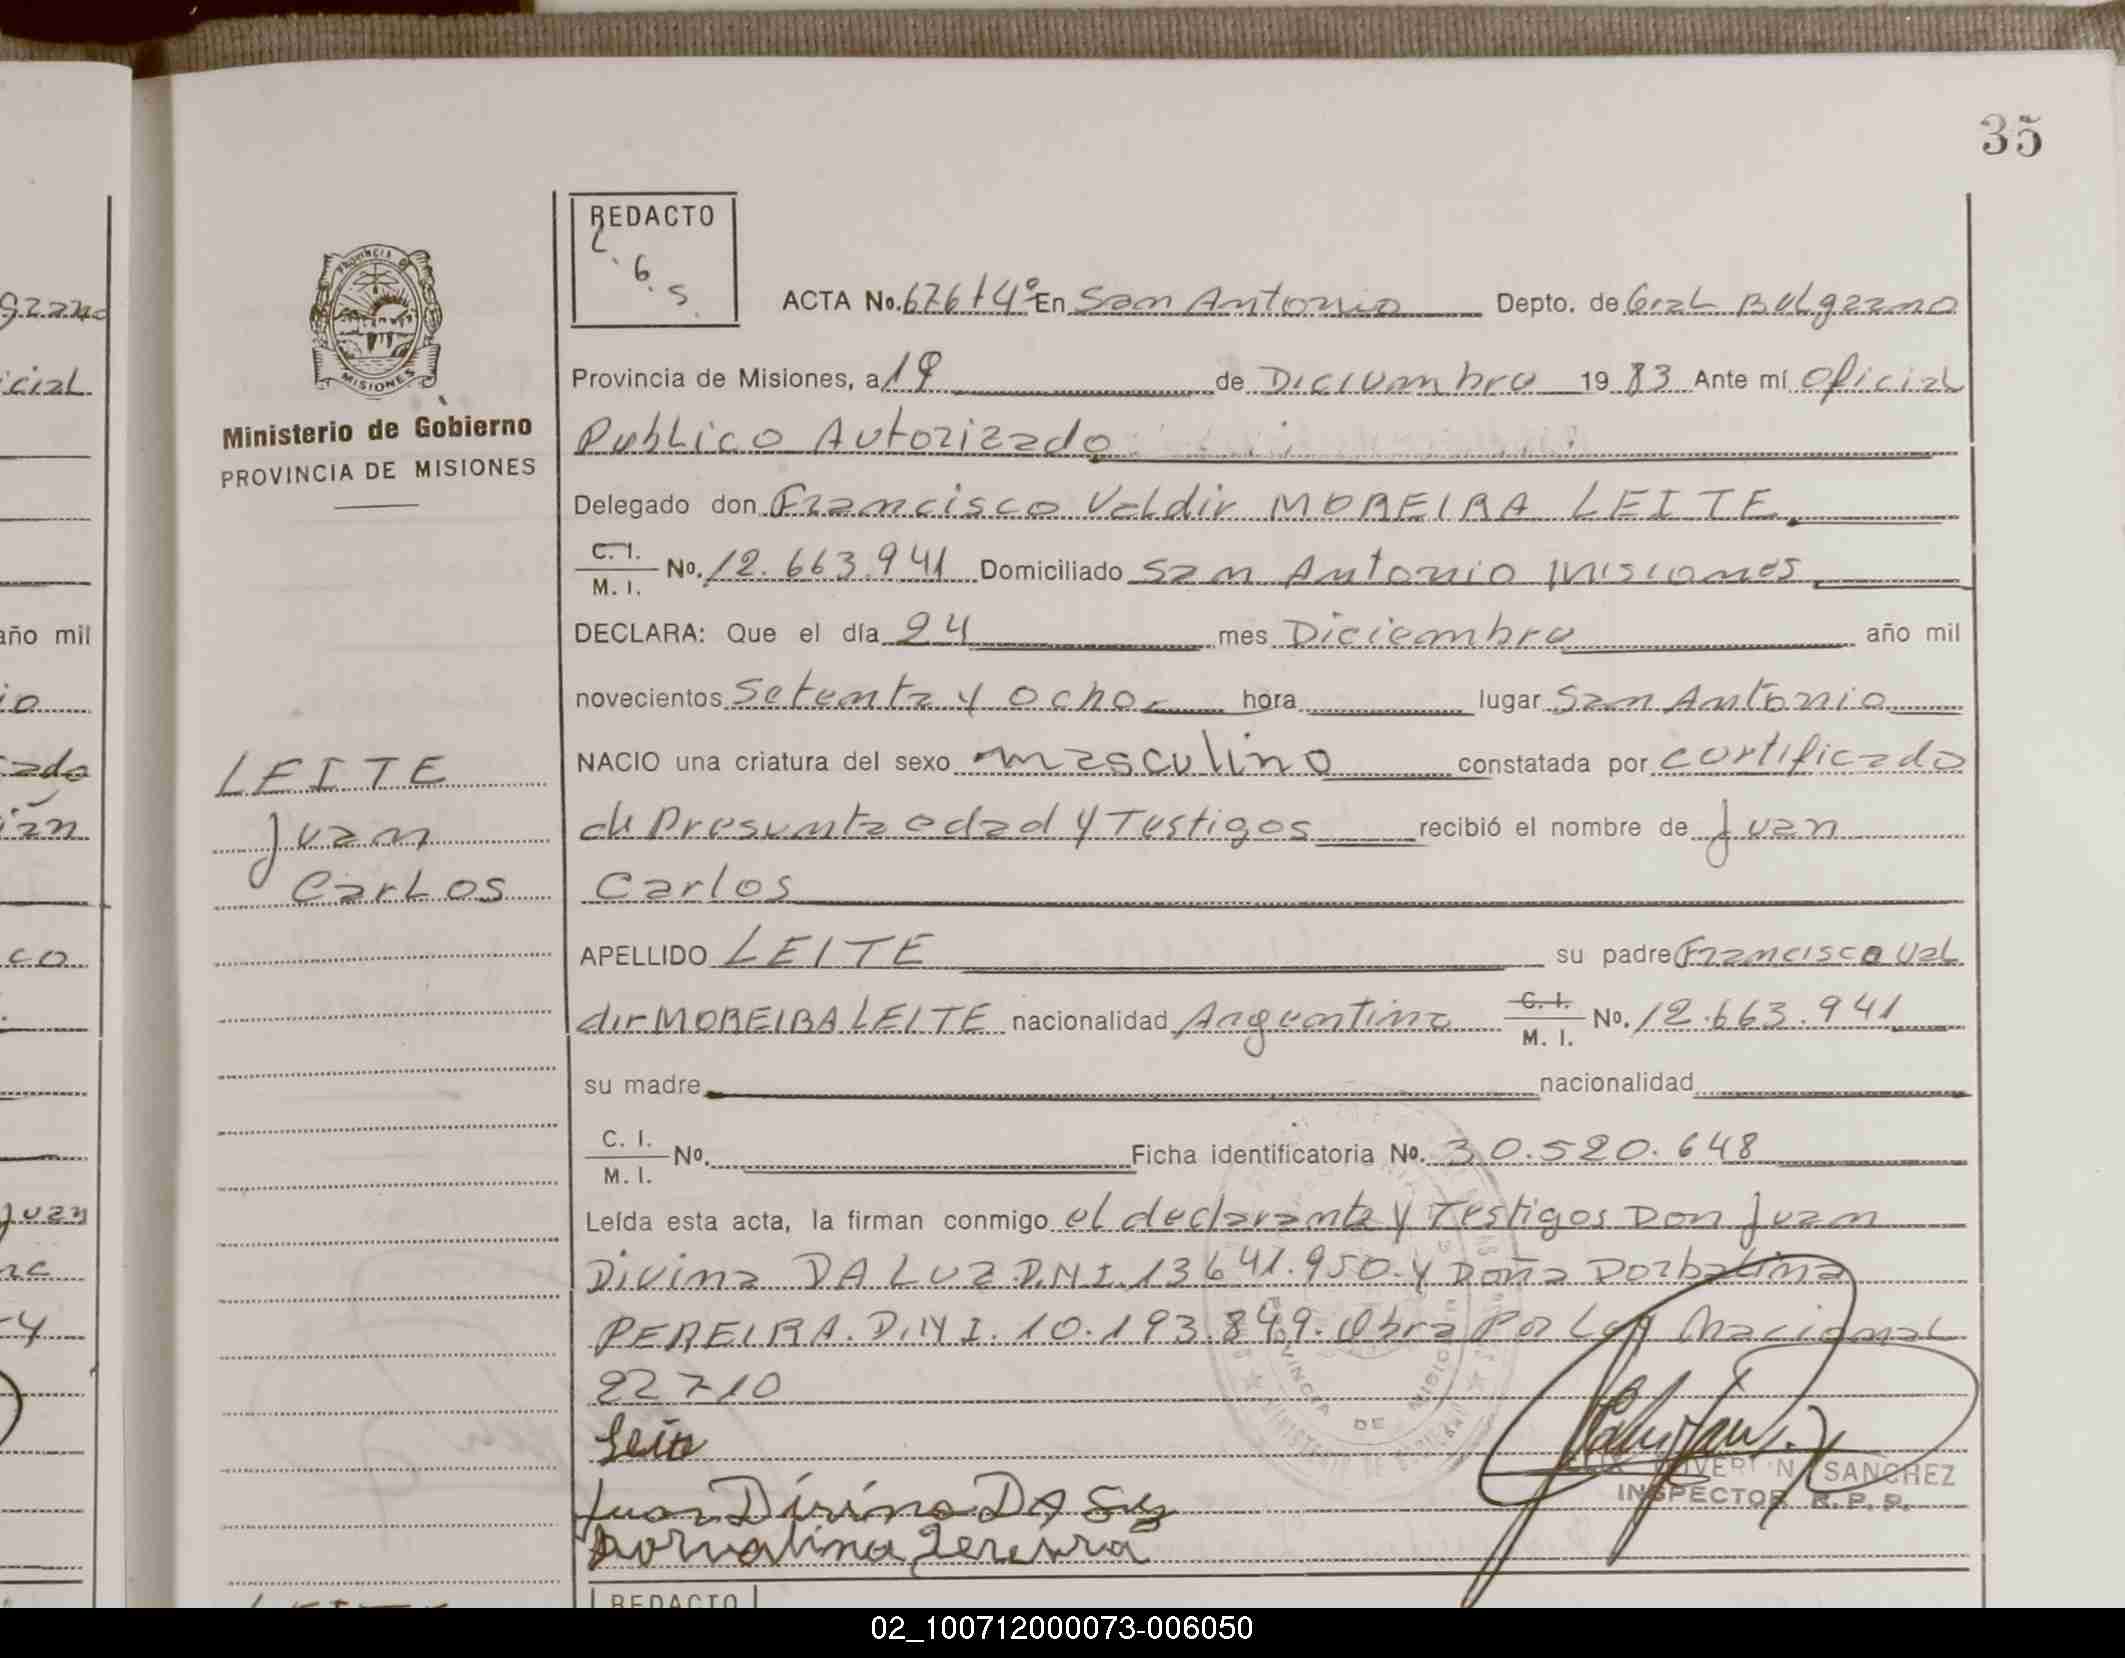 35
REDACTO
L.G.S.
ACTA No. 676 t 4º En San Antonio Depto. de Gral Belgrano
Provincia de Misiones, a 19 de Diciembre 1983 Ante mí Oficial
Publico Autorizado
Delegado don Francisco Valdir MOREIRA LEITE
C. I. / M. I. No. 12.663.941 Domiciliado San Antonio Misiones
DECLARA: Que el día 24 mes Diciembre año mil
novecientos Setenta y ocho hora lugar San Antonio
NACIO una criatura del sexo masculino constatada por certificado
de Presunta edad y Testigos recibió el nombre de Juan
Carlos
APELLIDO LEITE su padre Francisco Val
dir MOREIRA LEITE nacionalidad Argentina C. I. / M. I. No. 12.663.941
su madre nacionalidad
C. I. / M. I. No. Ficha identificatoria No. 30.520.648
Leída esta acta, la firman conmigo el declarante y Testigos Don Juan
Divina DA LUZ D.N.I. 13641.950.y Doña Dorbalina
PEREIRA. D.N I. 10.193.849. Obra Por Ley Nacional
22710
Leite
Juan Divino DA
Dorvalina Pereira
SANCHEZ
INSPECTOR R. P. P.
PROVINCIA DE MISIONES
MISIONES
Ministerio de Gobierno
PROVINCIA DE MISIONES
LEITE
Juan
Carlos
gzano
icial
año mil
io
zado
co
Juan
REDACTO
02_100712000073-006050